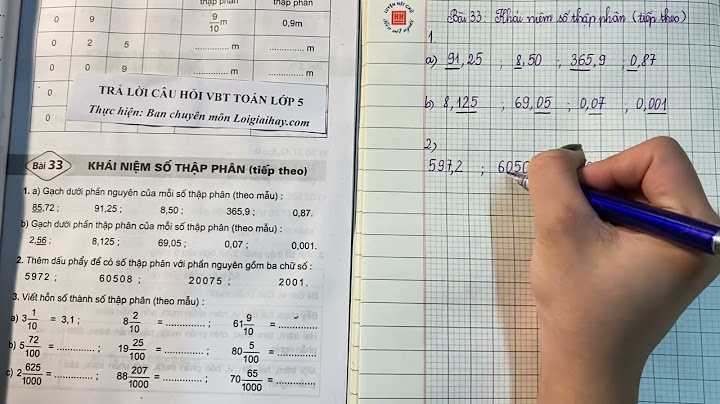 thập phân
thập phân
0 9 9/10 m 0,9m
0 2 5 ............ m ............ m
0 0 9 ............ m ............ m
0
0
TRẢ LỜI CÂU HỎI VBT TOÁN LỚP 5
Thực hiện: Ban chuyên môn Loigiaihay.com
Bài 33 KHÁI NIỆM SỐ THẬP PHÂN (tiếp theo)
1. a) Gạch dưới phần nguyên của mỗi số thập phân (theo mẫu) :
85,72 ; 91,25 ; 8,50 ; 365,9 ; 0,87.
b) Gạch dưới phần thập phân của mỗi số thập phân (theo mẫu) :
2,56 ; 8,125 ; 69,05 ; 0,07 ; 0,001.
2. Thêm dấu phẩy để có số thập phân với phần nguyên gồm ba chữ số :
5972 ; 60508 ; 20075 ; 2001.
3. Viết hỗn số thành số thập phân (theo mẫu) :
a) 3 1/10 = 3,1 ; 8 2/10 = ............ ; 61 9/10 = ............
b) 5 72/100 = ............ ; 19 25/100 = ............ ; 80 5/100 = ............
c) 2 625/1000 = ............ ; 88 207/1000 = ............ ; 70 65/1000 = ............
Bài 33: Khái niệm số thập phân (tiếp theo)
1.
a) 91,25 ; 8,50 ; 365,9 ; 0,87
b) 8,125 ; 69,05 ; 0,07 ; 0,001
2,
597,2 ; 6050